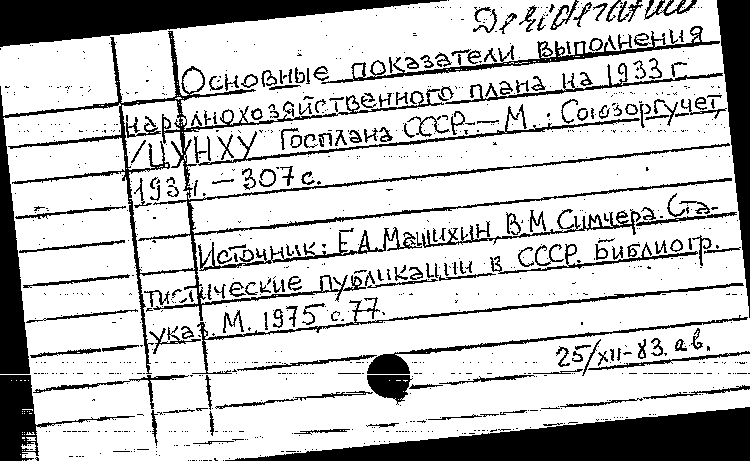 Desiderata
Основные показатели выполнения
народнохозяйственного плана на 1933 г.
/ЦУНХУ Госплана СССР. — М.: Союзоргучет,
1934. — 307 с.
Источник: Е.А. Машихин, В.М. Симчера. Ста-
тистические публикации в СССР. Библиогр.
указ. М. 1975, с. 77.
25/XII-83. ав.